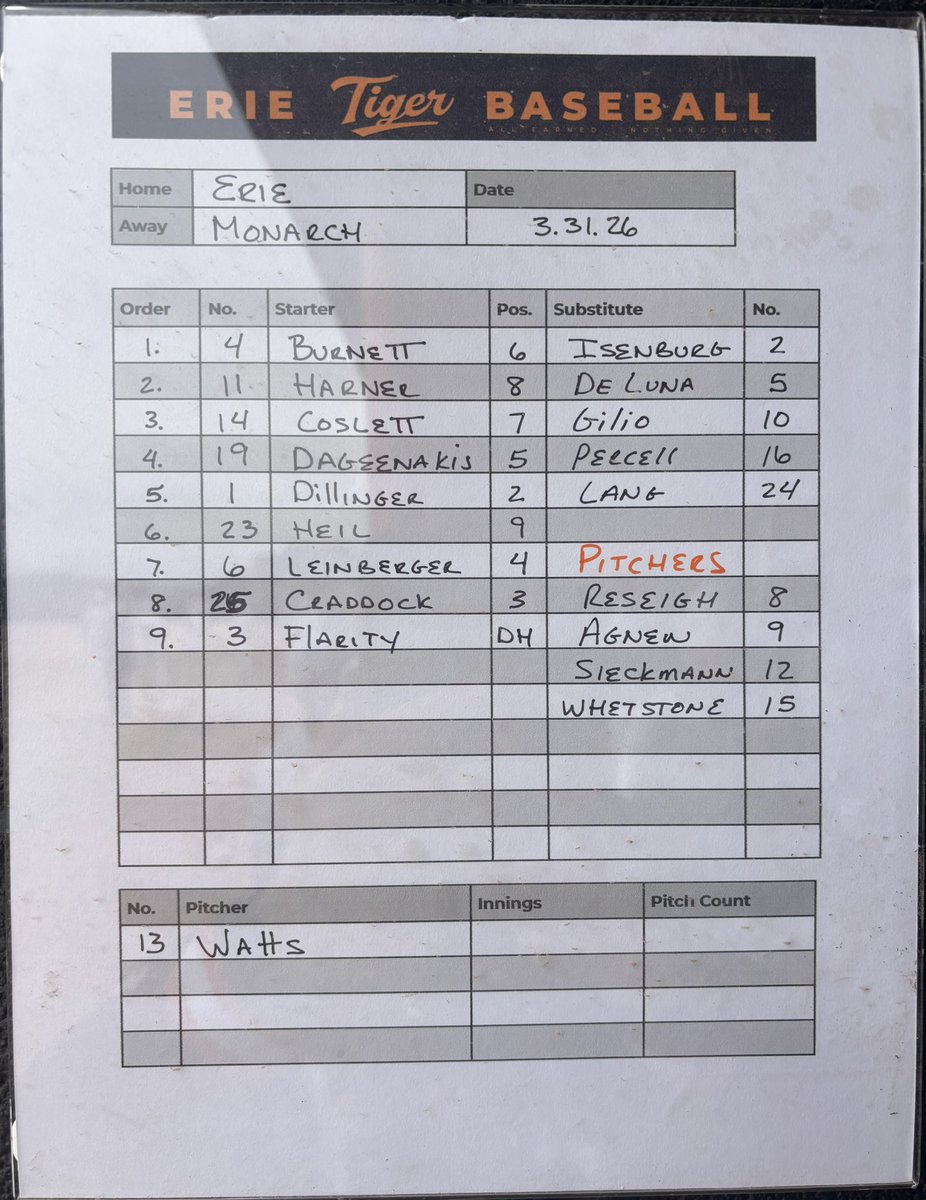 ERIE Tiger BASEBALL
ALL EARNED NOTHING GIVEN
Home ERIE Date
Away MONARCH 3.31.26
Order No. Starter Pos. Substitute No.
1. 4 BURNETT 6 ISENBURG 2
2. 11 HARNER 8 DE LUNA 5
3. 14 COSLETT 7 Gilio 10
4. 19 DAGEENAKIS 5 PERCELL 16
5. 1 DILLINGER 2 LANG 24
6. 23 HEIL 9
7. 6 LEINBERGER 4 PITCHERS
8. 25 CRADDOCK 3 RESEIGH 8
9. 3 FLARITY DH AGNEW 9
SIECKMANN 12
WHETSTONE 15
No. Pitcher Innings Pitch Count
13 WATTS